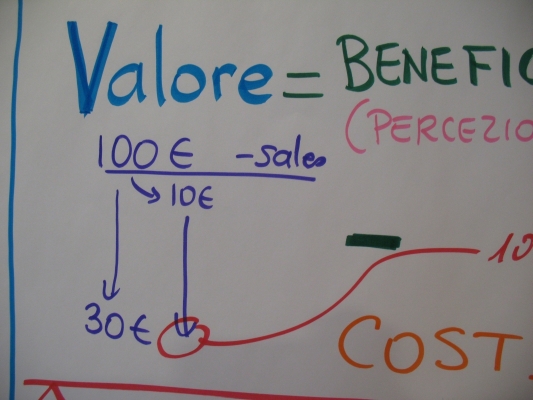 Valore = BENEFIC
(PERCEZIO
100 € - sales
10€
30€
10
COST.